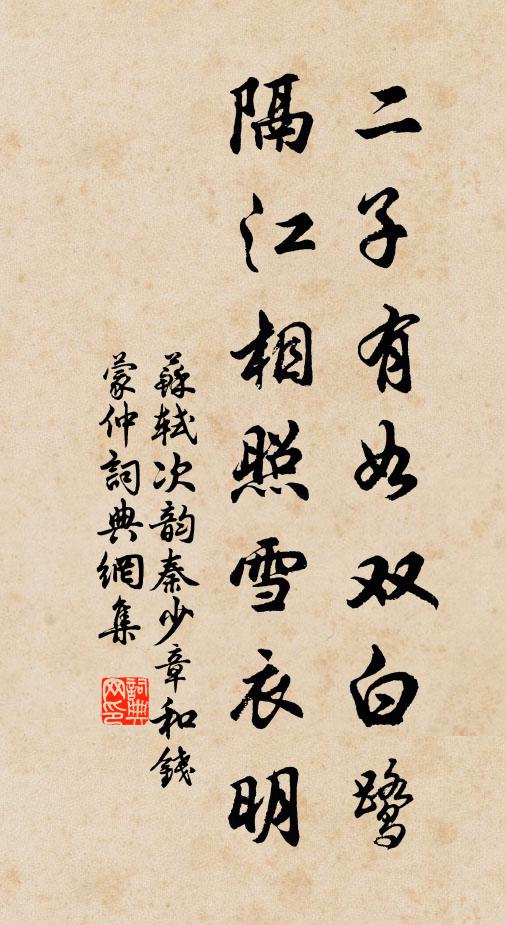 二子有如双白鹭
隔江相照雪衣明
蘇軾次韵秦少章和錢
蒙仲詞典網集
詞典网印